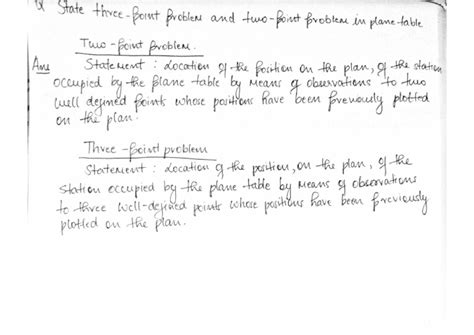 Q State three-point problem and two-point problem in plane-table
Two-point problem.
Ans Statement: Location of the position on the plan, of the station
occupied by the plane table by means of observations to two
well defined points whose positions have been previously plotted
on the plan.
Three-point problem
Statement: Location of the position, on the plan, of the
station occupied by the plane-table by means of observations
to three well-defined points whose positions have been previously
plotted on the plan.